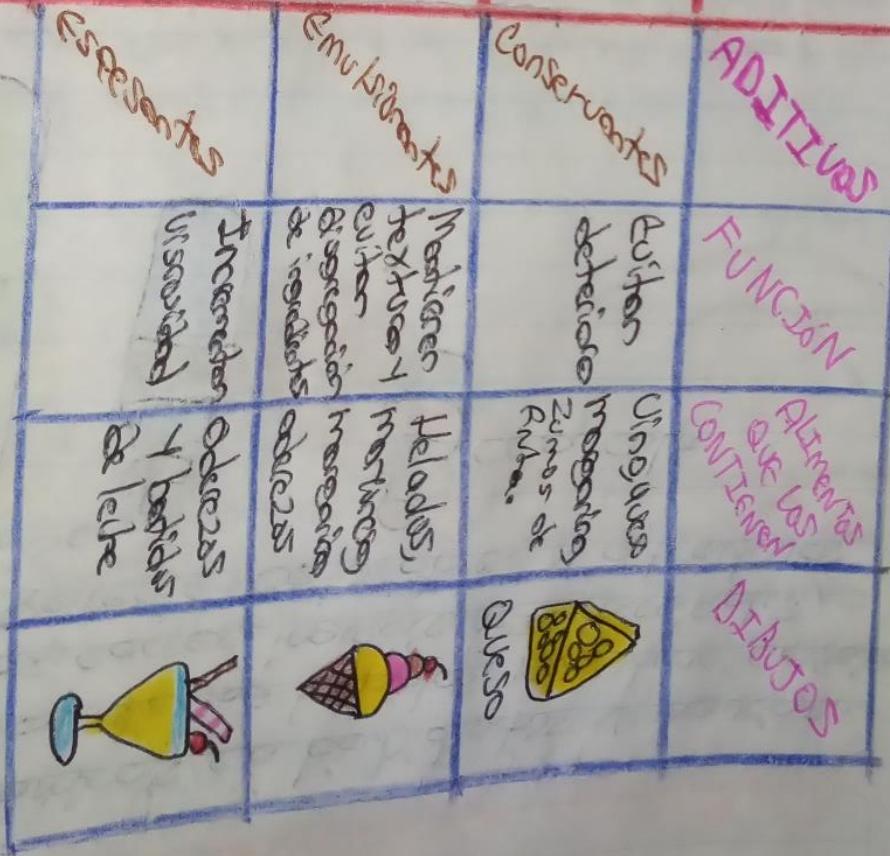 ADITIVOS
FUNCIÓN
ALIMENTOS
QUE LOS
CONTIENEN
DIBUJOS
Conservantes
Evitan
deterioro
Vinagres
margarina,
Zumos de
fruta.
QUESO
Emulsionantes
Mantienen
textura y
evitan
disgregación
de ingredientes
Helados,
margarina
aderezos
Espesantes
Incrementan
viscosidad
aderezos
y batidos
de leche